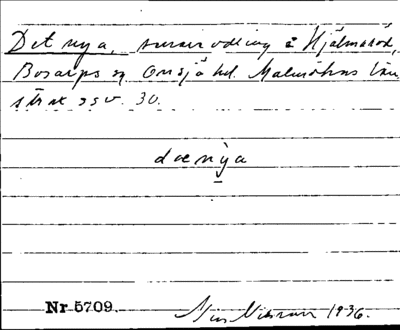 Det nya, svarvodling å Hjälmaröd,
Bosarps sn Onsjö hd. Malmöhus län
str. 30.
dæ nya
Nr 5709. Nils Nilsson 1936.